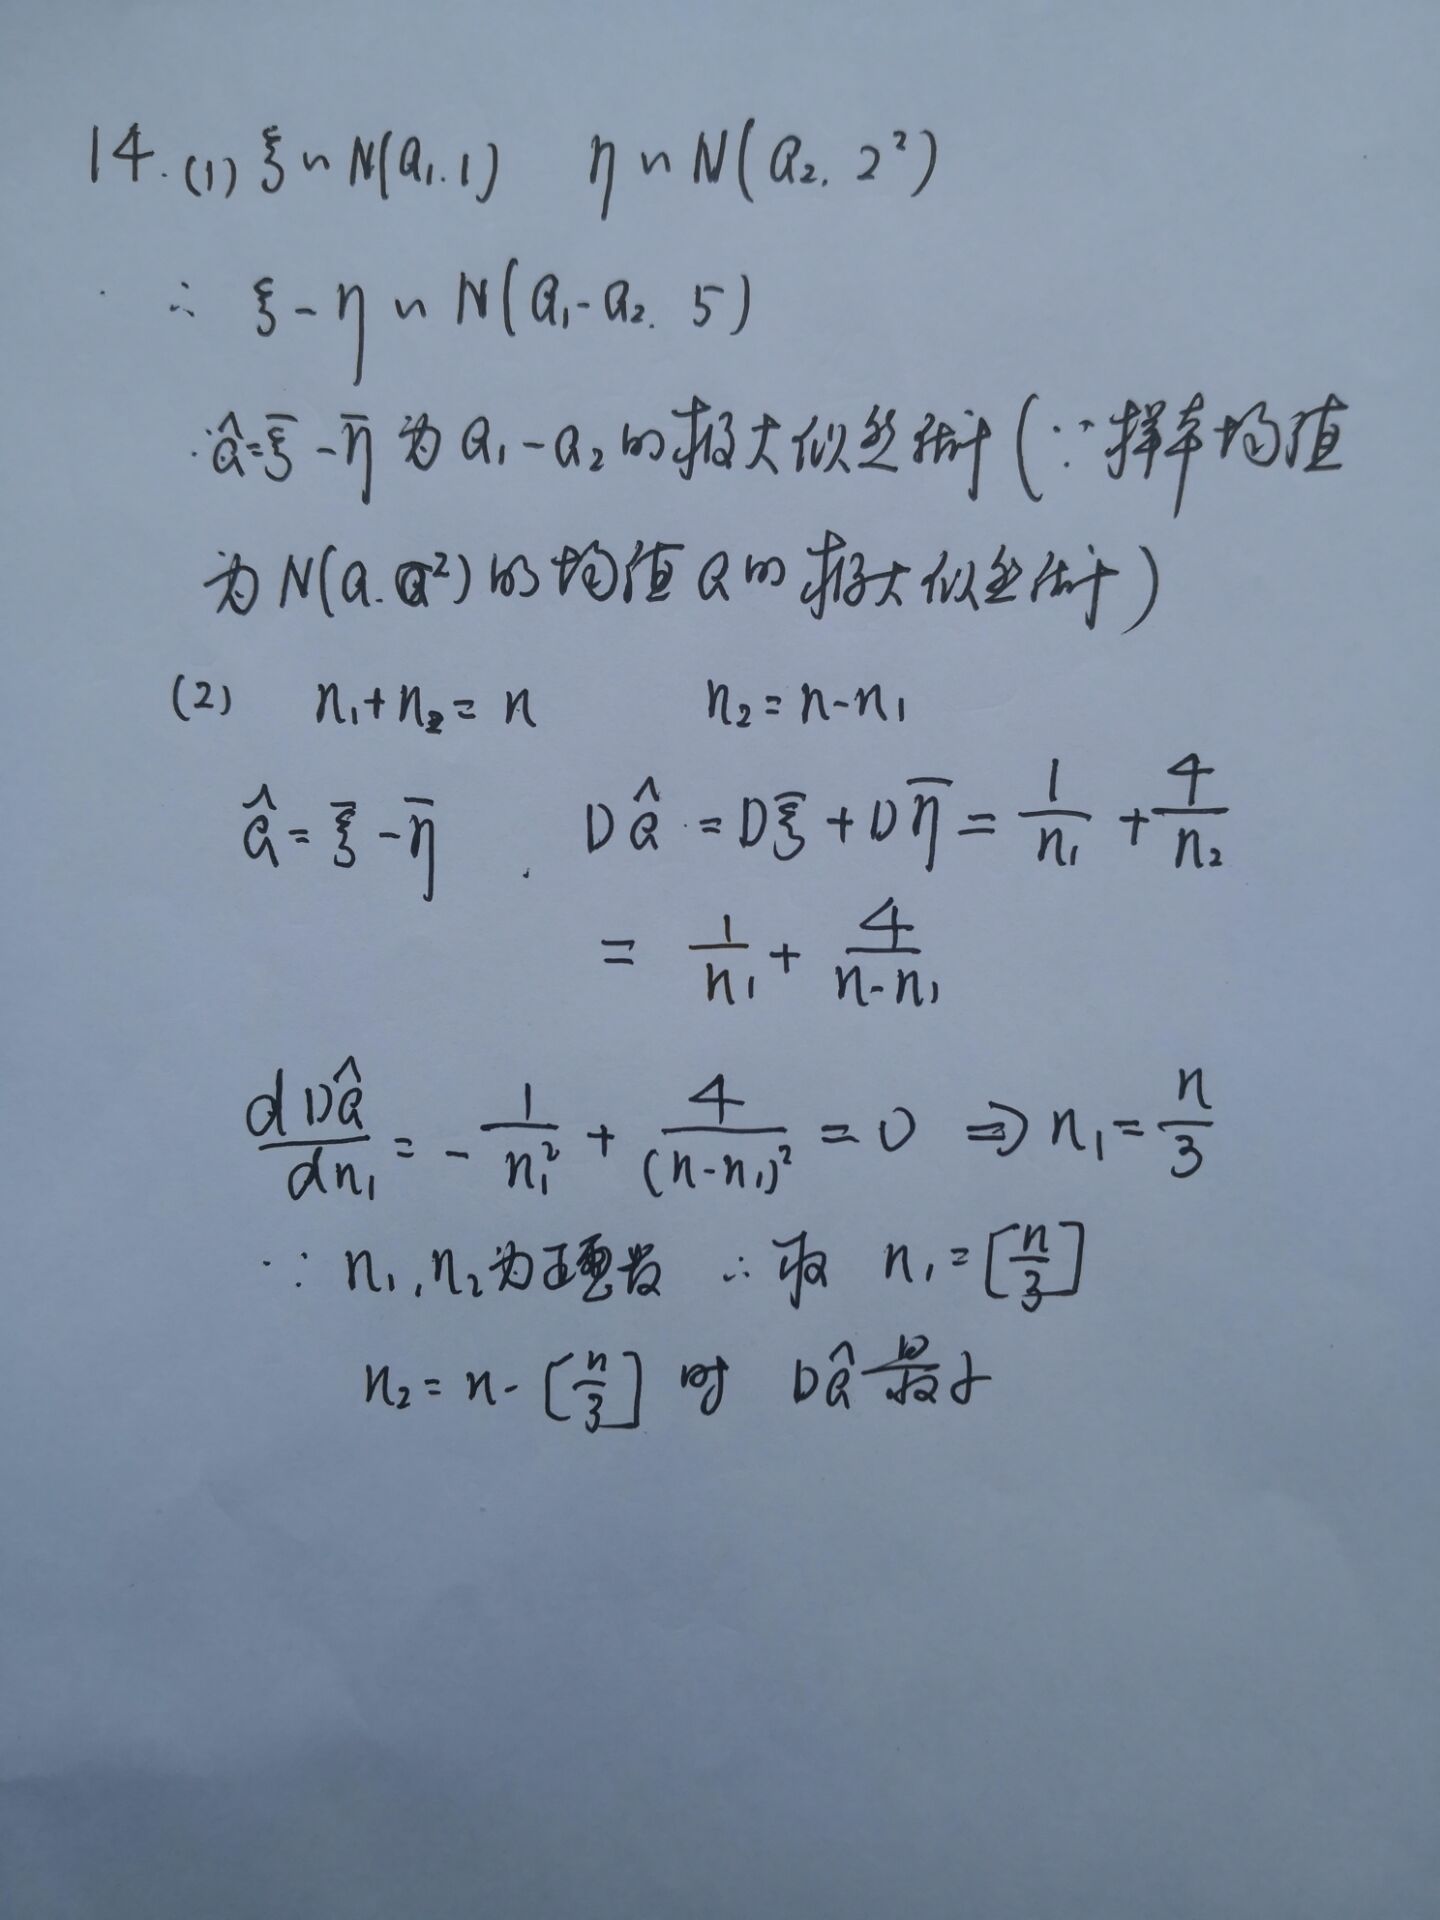 14. (1) ξ ~ N(a₁, 1)  η ~ N(a₂, 2²)
∴ ξ - η ~ N(a₁ - a₂, 5)
∴ â = ξ̄ - η̄ 为 a₁ - a₂ 的极大似然估计 (∵ 样本均值
为 N(a, σ²) 的均值 a 的极大似然估计)
(2) n₁ + n₂ = n  n₂ = n - n₁
â = ξ̄ - η̄ . Dâ = Dξ̄ + Dη̄ = 1/n₁ + 4/n₂
= 1/n₁ + 4/(n - n₁)
dDâ/dn₁ = - 1/n₁² + 4/(n - n₁)² = 0 ⇒ n₁ = n/3
∵ n₁, n₂ 为正整数 ∴ 取 n₁ = [n/3]
n₂ = n - [n/3] 时 Dâ